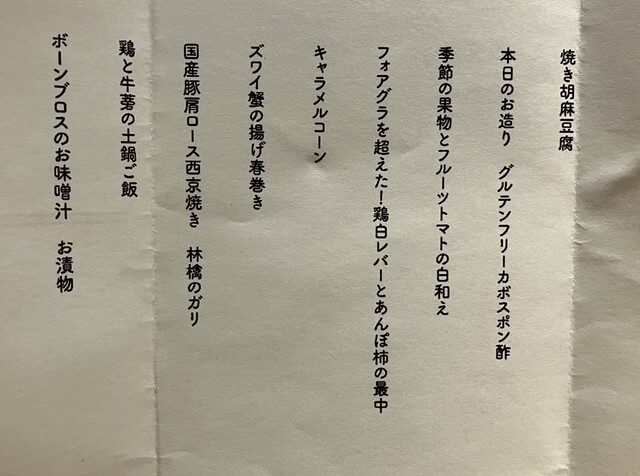 焼き胡麻豆腐
本日のお造り　グルテンフリーカボスポン酢
季節の果物とフルーツトマトの白和え
フォアグラを超えた！鶏白レバーとあんぽ柿の最中
キャラメルコーン
ズワイ蟹の揚げ春巻き
国産豚肩ロース西京焼き　林檎のガリ
鶏と牛蒡の土鍋ご飯
ボーンブロスのお味噌汁　お漬物